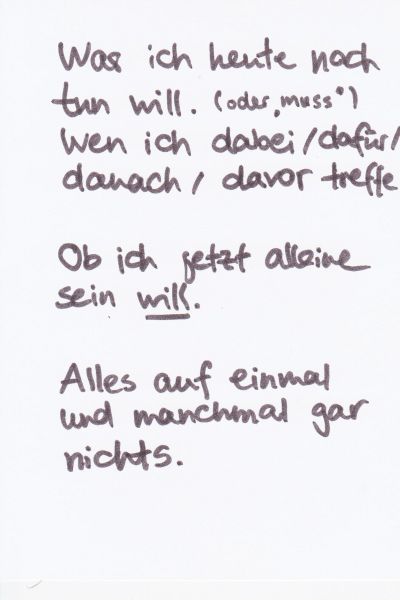 Was ich heute noch
tun will. (oder „muss“)
Wen ich dabei/dafür/
danach/ davor treffe
Ob ich jetzt alleine
sein will.
Alles auf einmal
und manchmal gar
nichts.